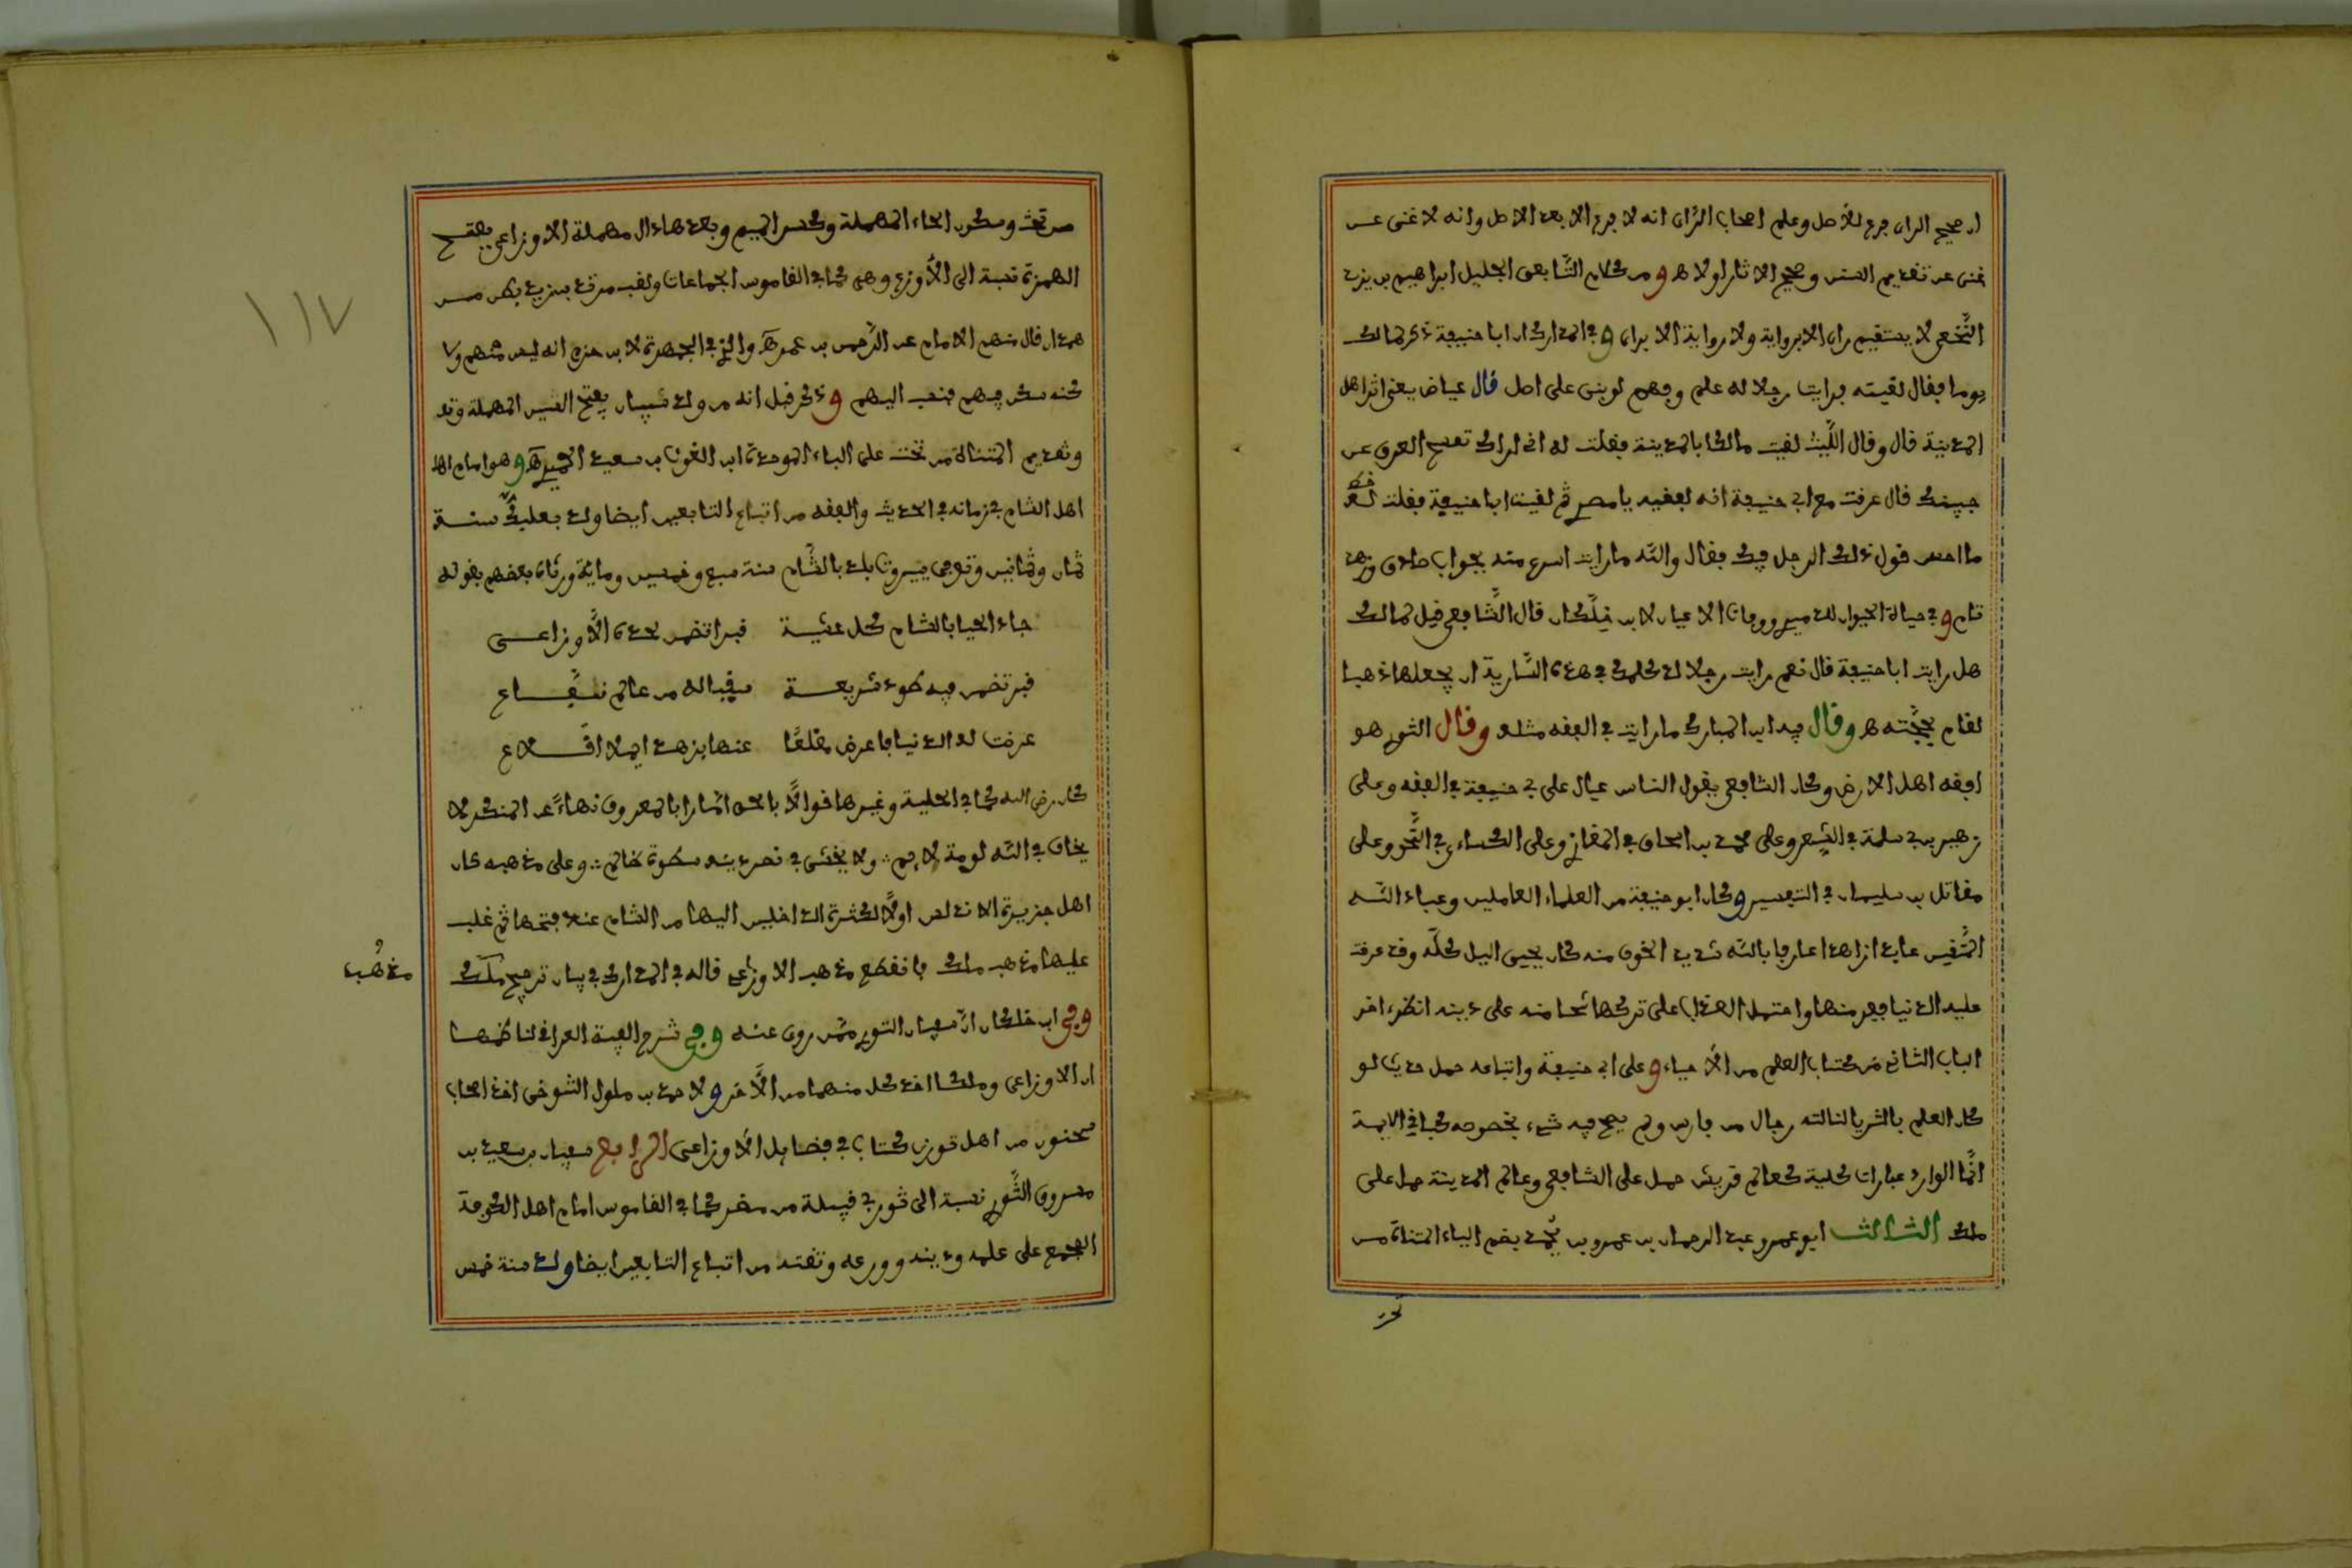 ان صحيح الراى فرع للأصل وعلم اصحاب الرّاى انه لا فرع الا بعد الاصل وانه لا غنى عن
غنى عن تقديم السنن وصحيح الاثار اولا هـ ومن كلام التّابعى الجليل ابراهيم بن يزيد
النَّخعى لا يستقيم راى الا برواية ولا رواية الا براى وفى المدارك ان ابا حنيفة ذكر مالك
يوما فقال لقيته فرايت رجلا له علم وفهم لو بنى على اصل قال عياض يعنى اثر اهل
المدينة قال وقال اللّيث لقيت مالكا بالمدينة فقلت له انى اراك تمسح العرق عن
جبينك قال عرقت مع ابى حنيفة انه لفقيه يا مصرى ثم لقيت ابا حنيفة فقلت له
ما احسن قول ذلك الرجل فيك فقال والله ما رايت اسرع منه بجواب صادق وزهد
تام وفى حياة الحيوان للدميرى ووفيات الاعيان لابن خلّكان قال الشّافعى قيل لمالك
هل رايت ابا حنيفة قال نعم رايت رجلا لو كلمك فى هذه السّارية ان يجعلها ذهبا
لقام بحجّته هـ وقال فيه ابن المبارك ما رايت فى الفقه مثله وقال الثورى هو
افقه اهل الارض وكان الشافعى يقول الناس عيال على ابى حنيفة فى الفقه وعلى
زهير بن ابى سلمة فى الشِّعر وعلى محمد بن اسحاق فى المغازى وعلى الكساءى فى النَّحو وعلى
مقاتل بن سليمان فى التفسير وكان ابو حنيفة من العلماء العاملين وعباد الله
المتّقين عابدا زاهدا عارفا بالله شديد الخوف منه كان يحيى اليل كلّه وقد عرضت
عليه الدنيا ففر منها واحتمل العذاب على تركها شحا منه على دينه انظر اخر
الباب الثانى من كتاب العلم من الاحياء وعلى ابى حنيفة واتباعه حمل حديث لو
كان العلم بالثريا لنالته رجال من فارس ولم يصح فيه شىء بخصوصه كباقى الايمة
انّما الوارد عبارات كلية كعالم قريش حمل على الشافعى وعالم المدينة حمل على
ملك الثالث ابو عمرو عبد الرحمان بن عمرو بن يُحمد بضم الياء المثناة من
تحت
من تحت وسكون الحاء المهملة وكسر الميم وبعدها دال مهملة الاوزاعى بفتح
الهمزة نسبة الى الأوزع وهى كما فى القاموس الجماعات ولقب مرثد بن زيد بطن من
همدان قال منهم الامام عبد الرّحمن بن عمرو هـ والذى فى الجمهرة لابن حزم انه ليس منهم ولا
كنه سكن فيهم فنسب اليهم وذكر قبل انه من ولد سيبان بفتح السين المهملة وتد
وتقديم المثناة من تحت على الباء الموحدة ابن الغوث بن سعيد الحميرى هـ وهو امام اهل
اهل الشام فى زمانه فى الحديث والفقه من اتباع التابعين ايضا ولد ببعلبك سنة
ثمان وثمانين وتوفى ببيروت بلد بالشّام سنة سبع وخمسين وماية ورثاه بعضهم بقوله
جاد الحيا بالشام كل عشية قبرا تضمن لحده الأوزاعى
قبر تضمن فيه طود شريعة سقيا له من عالم نفّاع
عرضت له الدنيا فاعرض مقلعًا عنها بزهد ايما اقلاع
كان رضى الله كما فى الحلية وغيرها قوالاً بالحق امّارا بالمعروف نهاءً عن المنكر لا
يخاف فى الله لومة لايم ولا يخشى فى نصر دينه سطوة ظالم وعلى مذهبه كان
اهل جزيرة الاندلس اولاً لكثرة الداخلين اليها من الشام عند فتحها ثم غلب
عليها مذهب ملك فانقطع مذهب الاوزاعى قاله فى المدارك فى بيان ترجيح ملك
مذهب
وفى ابن خلكان ان سفيان الثورى ممن روى عنه وفى شرح الفية العراقى لناظمها
ان الاوزاعى وملكا اخذ كل منهما من الأخر ولاحمد بن ملول التنوخى احد اصحاب
سحنون من اهل توزر كتاب فى فضايل الأوزاعى الرابع سفيان بن سعيد بن
مسروق الثّورى نسبة الى ثور فى قبيلة من مضر كما فى القاموس امام اهل الكوفة
المجمع على علمه ودينه وورعه وثقته من اتباع التابعين ايضا ولد سنة خمس
١١٧